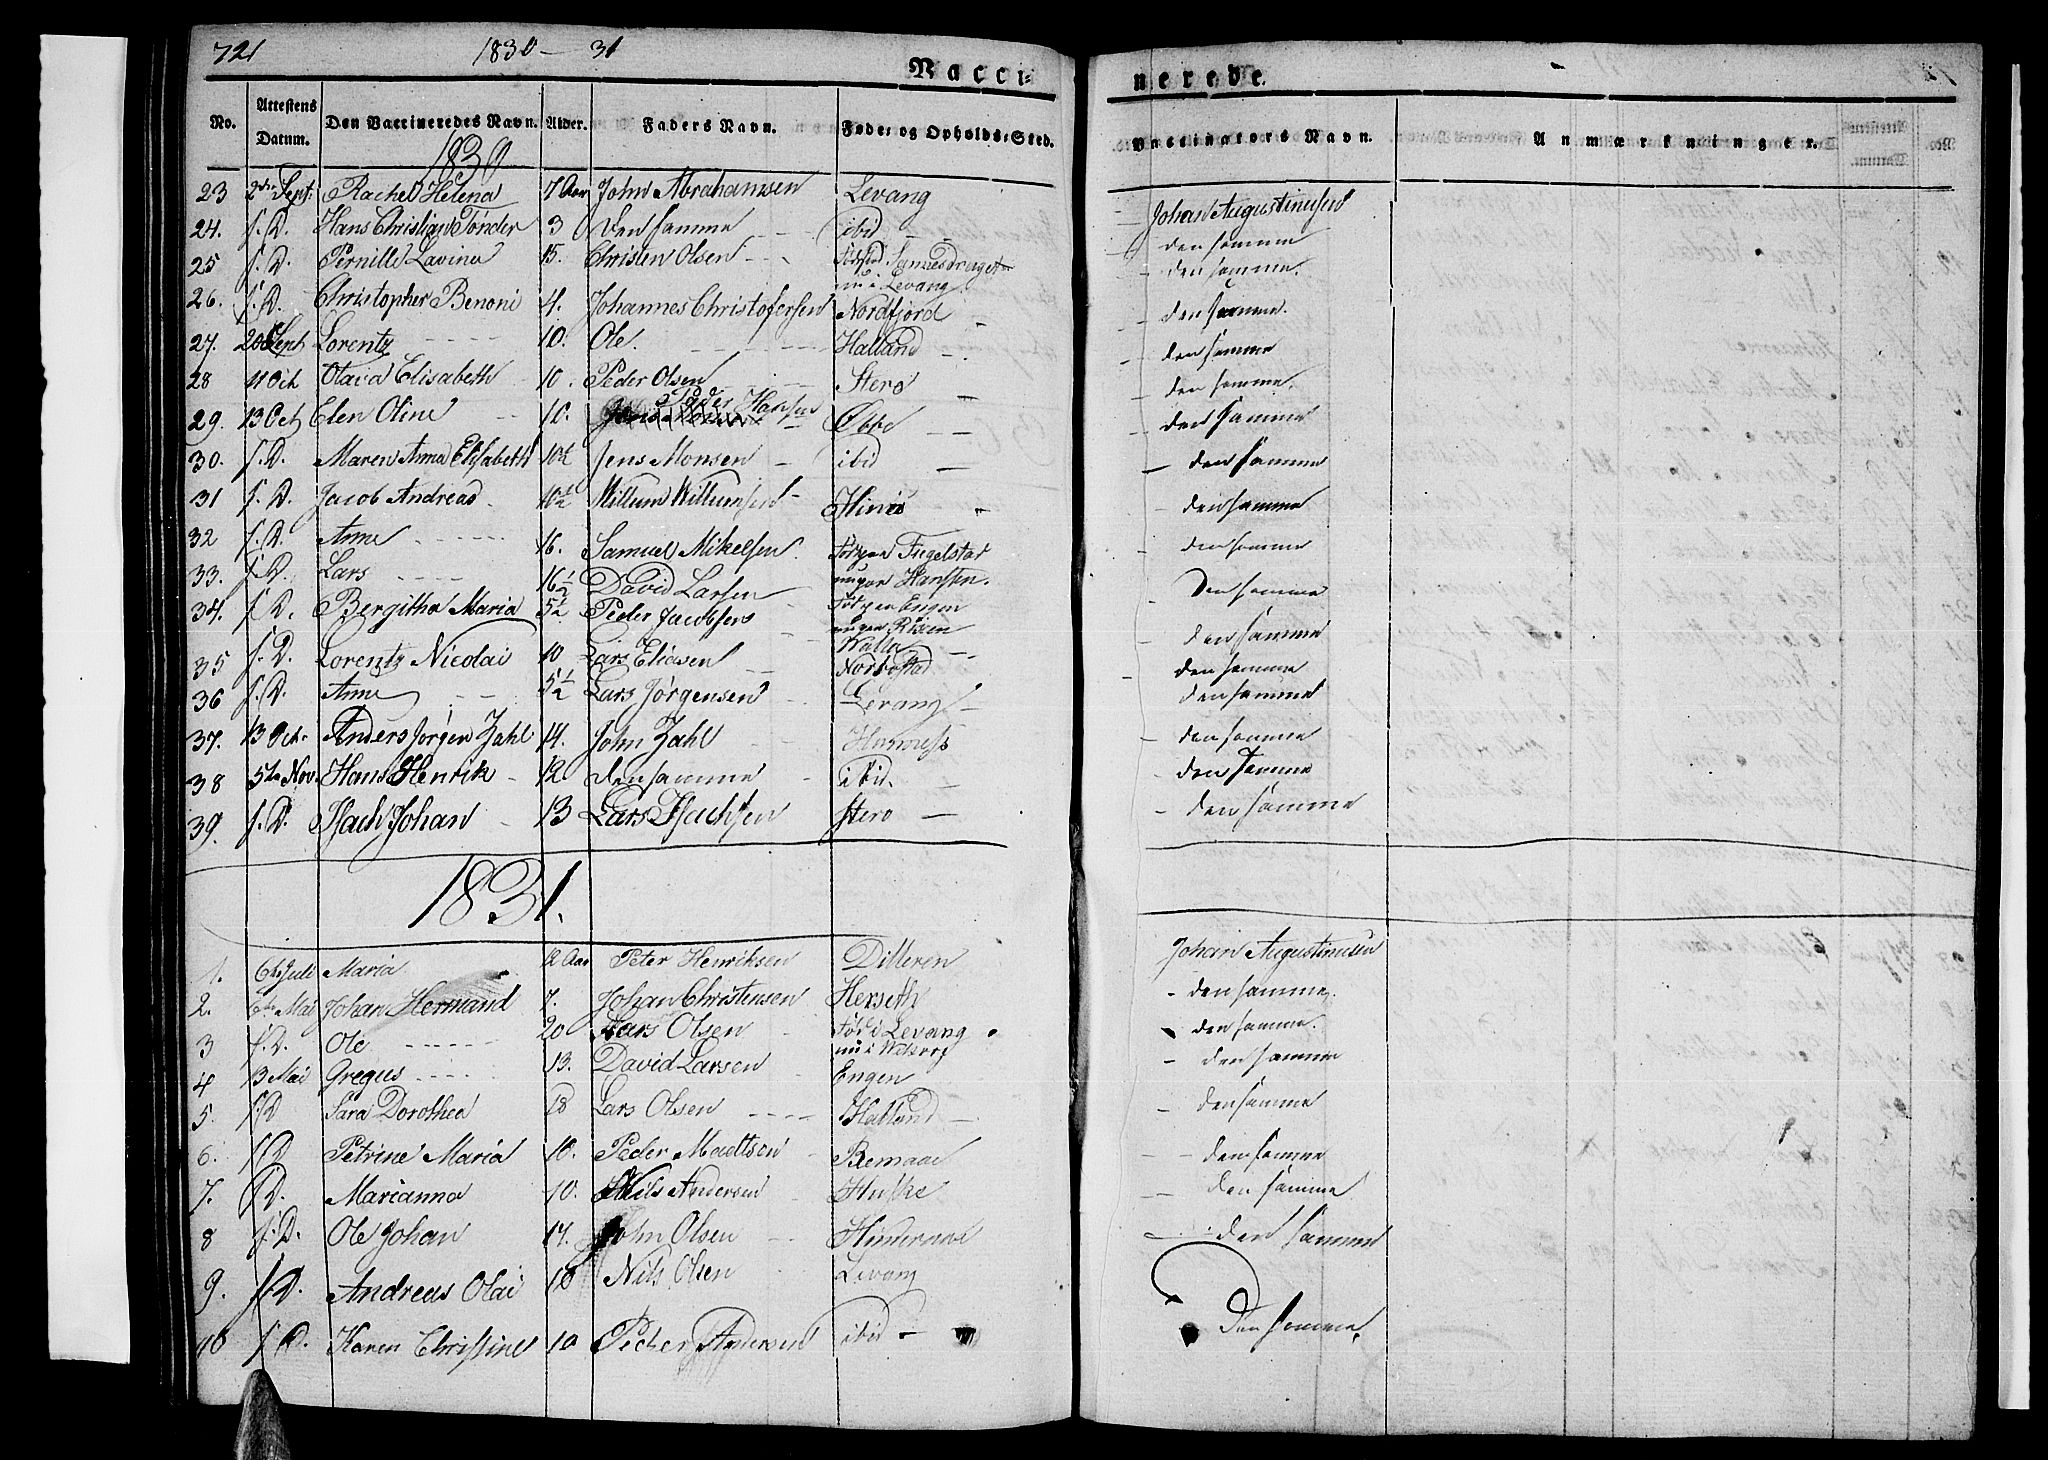 721 1830 — 31
Vacci=
nerede.
No. Attestens Datum. Den Vaccineredes Navn. Alder. Faders Navn. Føde= og Opholds=Sted. Vaccinators Navn. Anmærkninger.
1830
23 2den Sept: Rachel Helena 7 Aar John Abrahamsen Levang Johan Augustinusen
24. s. D. Hans Christian Tønder 3 den samme ibid den samme
25 s. D. Pernille Lavina 15. Christen Olsen Født paa Sannesdraget nu i Levang den samme.
26. s. D. Christopher Benoni 4. Johannes Christofersen Nordfjord den samme.
27. 20 Sept Lorentz 10. Ole Halland den samme
28 11 Oct Olava Elisabeth 10. Peder Olsen Sterø den samme.
29. 13 Oct Elen Oline 10. Peder Hansen Øbbe den samme
30. s. D. Maren Anna Elisabeth 10½ Jens Monsen ibid den samme
31 s. D. Jacob Andreas 10½ Willum Willumsen den samme
32 s. D. Anne 16. Samuel Mikelsen Født paa Fugelstad nu paa Hansten. den samme
33. s. D. Lars 16½ David Larsen Født paa Engen nu paa Risen den samme
34. s. D. Bergitha Maria 5½ Peder Jacobsen Walla den samme
35 s. D. Lorentz Nicolai 10 Lars Eliasen Norbostad den samme
36 s. D. Anne 5½ Lars Jörgensen Levang den samme
37. 13 Oct. Anders Jørgen Zahl 14. John Zahl den samme
38 5te Nov. Hans Henrik 12. den samme ibid. den samme
39. s. D. Isach Johan 13 Lars Isachsen Sterø den samme
1831.
1. 6te Juli Maria 12 Aar Peter Henriksen Dilleren Johan Augustinusen
2. 6te Mai Johan Hermand 7. Johan Christensen Herseth den samme.
3 s. D. Ole 20 Lars Olsen Fød i Levang den samme.
4 13 Mai Gregus 13. David Larsen Engen den samme
5. s. D Sara Dorothea 18 Lars Olsen Halland den samme
6. s. D Petrine Maria 10. Peder Madtsen Remaae den samme
7. s. D. Marianna 10. Nils Andersen Huske den samme
8 s. D. Ole Johan 14. John Olsen den samme
9. s. D. Andreas Olai 10 Nils Olsen Levang
10 s. D. Karen Christine 10 Peder Andersen ibid den samme.